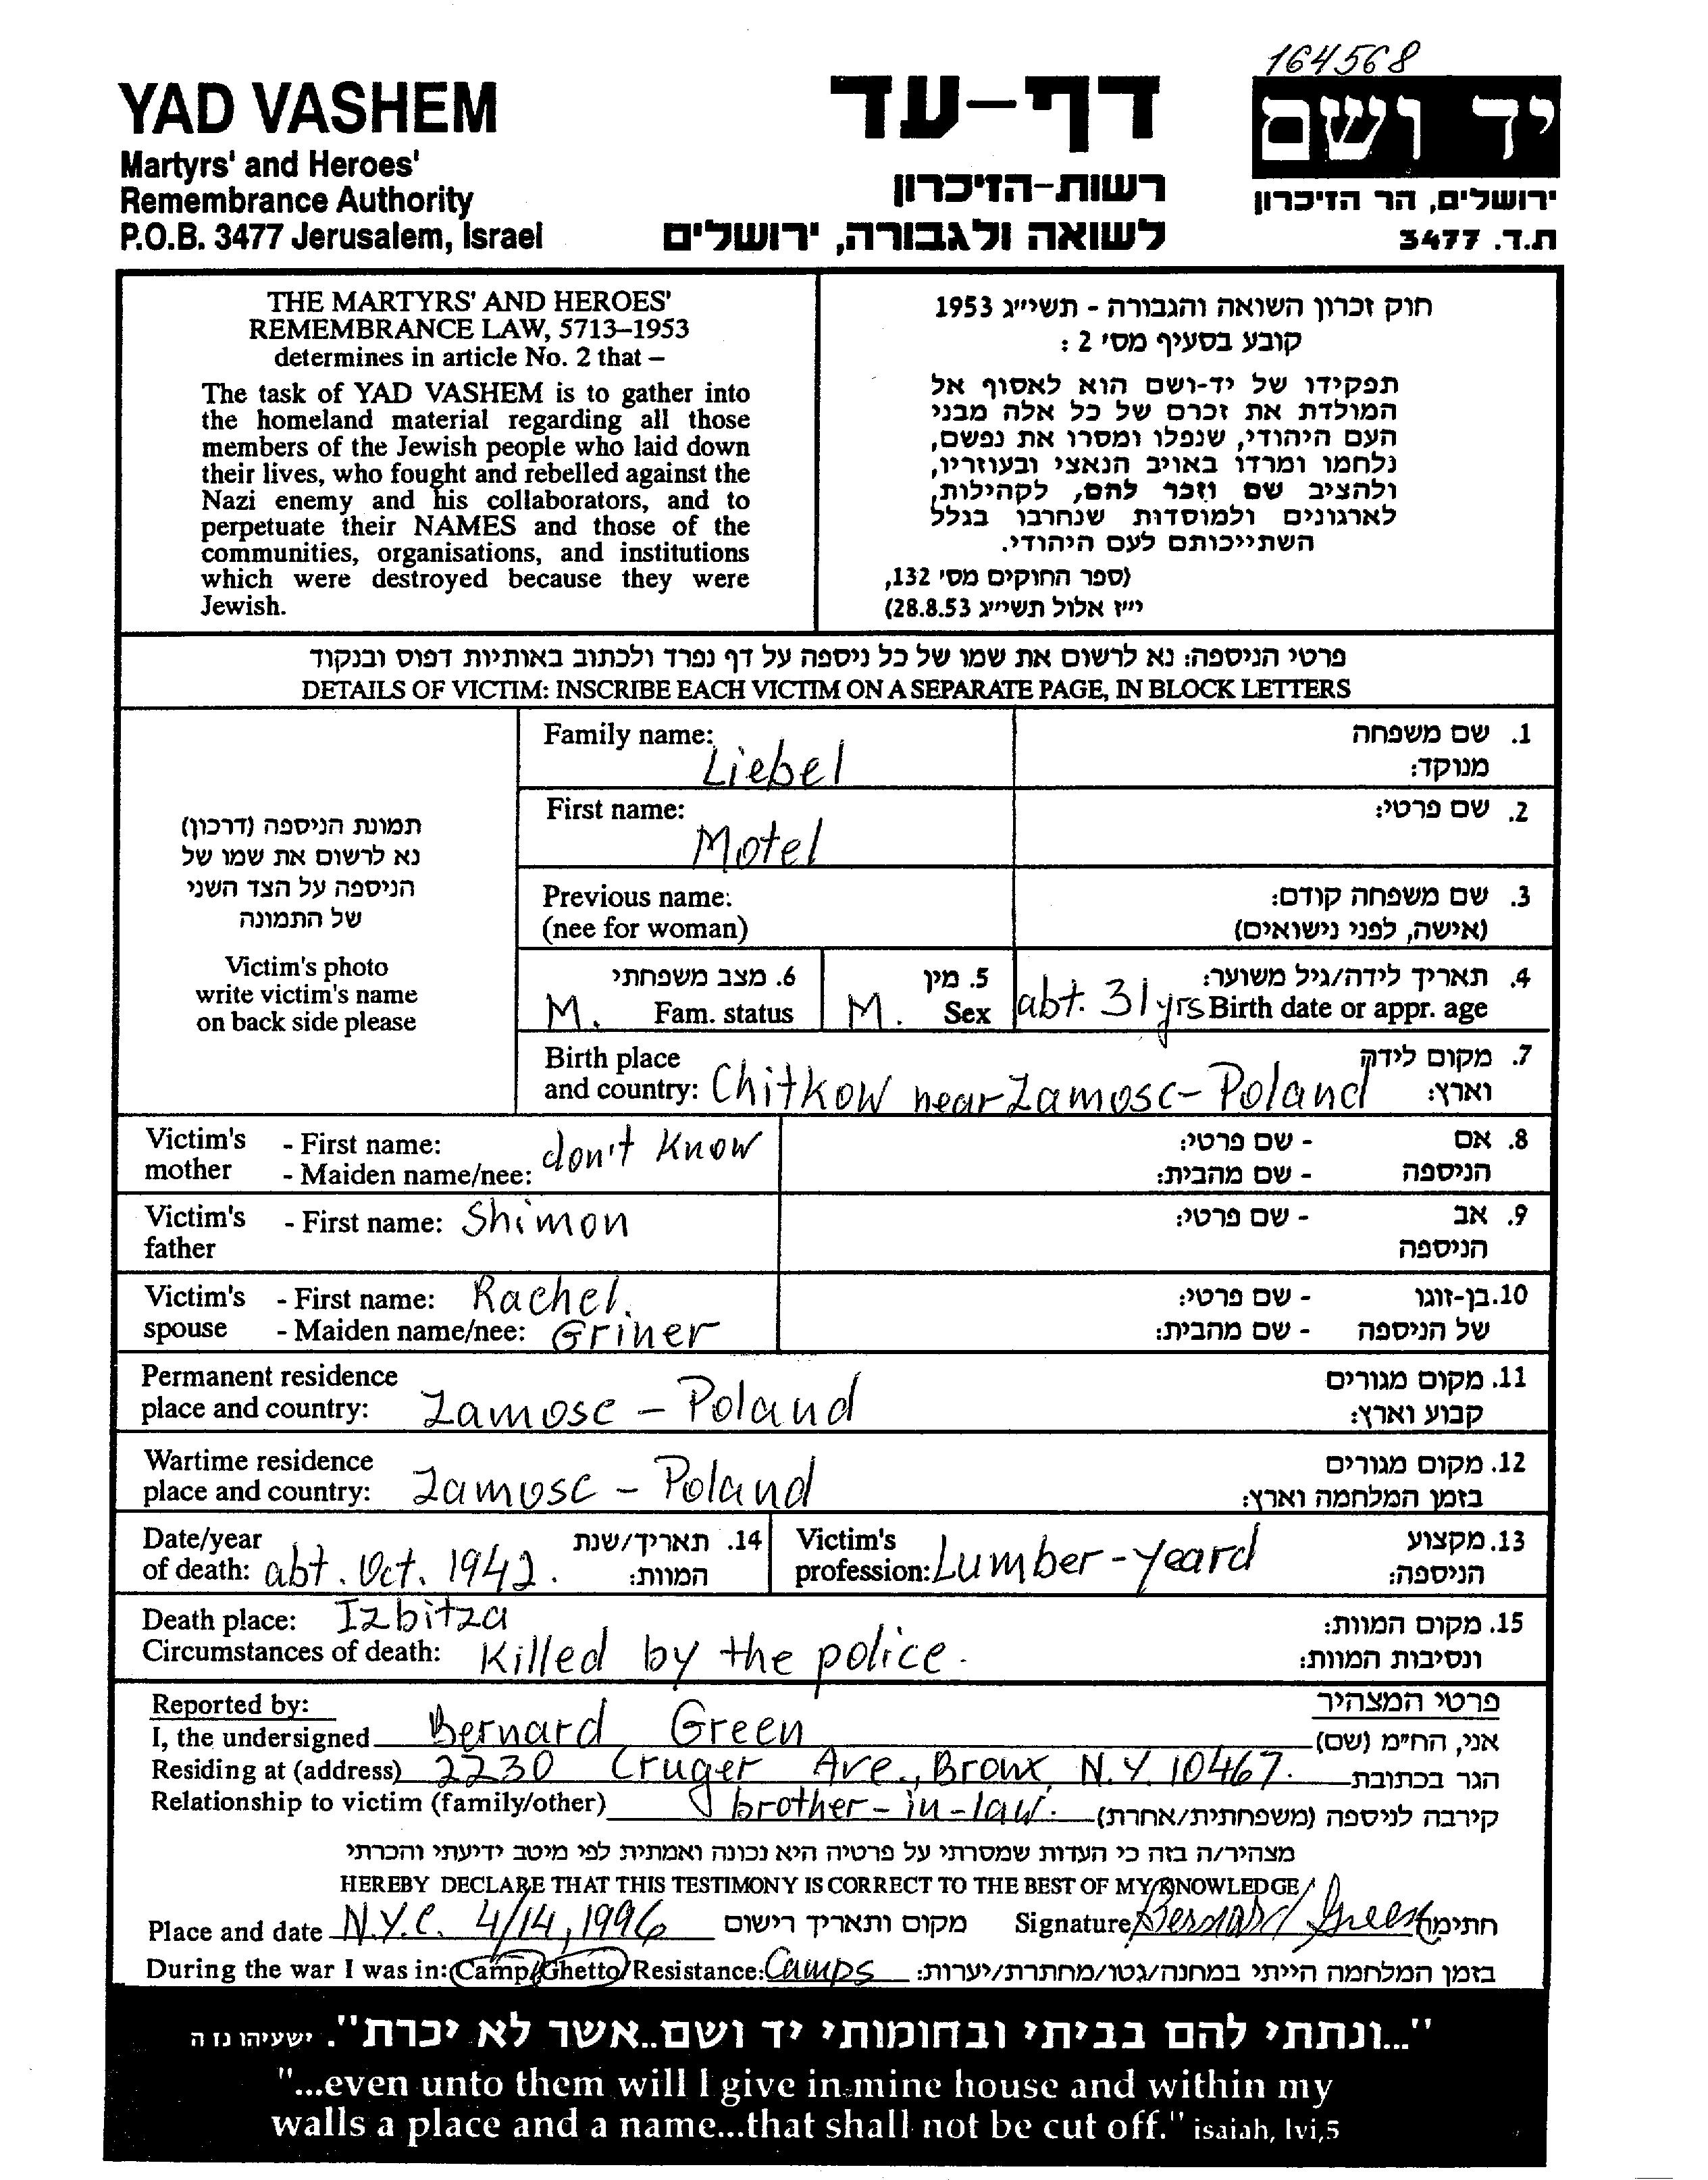 164568
YAD VASHEM
Martyrs' and Heroes'
Remembrance Authority
P.O.B. 3477 Jerusalem, Israel
דף-עד
רשות-הזיכרון
לשואה ולגבורה, ירושלים
יד ושם
ירושלים, הר הזיכרון
ת.ד. 3477
THE MARTYRS' AND HEROES'
REMEMBRANCE LAW, 5713–1953
determines in article No. 2 that –
The task of YAD VASHEM is to gather into
the homeland material regarding all those
members of the Jewish people who laid down
their lives, who fought and rebelled against the
Nazi enemy and his collaborators, and to
perpetuate their NAMES and those of the
communities, organisations, and institutions
which were destroyed because they were
Jewish.
חוק זכרון השואה והגבורה - תשי״ג 1953
קובע בסעיף מס׳ 2 :
תפקידו של יד-ושם הוא לאסוף אל
המולדת את זכרם של כל אלה מבני
העם היהודי, שנפלו ומסרו את נפשם,
נלחמו ומרדו באויב הנאצי ובעוזריו,
ולהציב שם וזכר להם, לקהילות,
לארגונים ולמוסדות שנחרבו בגלל
השתייכותם לעם היהודי.
(ספר החוקים מס׳ 132,
י״ז אלול תשי״ג 28.8.53)
פרטי הניספה: נא לרשום את שמו של כל ניספה על דף נפרד ולכתוב באותיות דפוס ובנקוד
DETAILS OF VICTIM: INSCRIBE EACH VICTIM ON A SEPARATE PAGE, IN BLOCK LETTERS
תמונת הניספה (דרכון)
נא לרשום את שמו של
הניספה על הצד השני
של התמונה
Victim's photo
write victim's name
on back side please
Family name: Liebel 1. שם משפחה
מנוקד:
First name: Motel 2. שם פרטי:
Previous name: 3. שם משפחה קודם:
(nee for woman) (אישה, לפני נישואים)
6. מצב משפחתי 5. מין 4. תאריך לידה/גיל משוער:
M. Fam. status M. Sex abt. 31 yrs Birth date or appr. age
Birth place 7. מקום לידה
and country: Chitkow near Zamosc - Poland וארץ:
Victim's - First name: don't know - שם פרטי: 8. אם
mother - Maiden name/nee: - שם מהבית: הניספה
Victim's - First name: Shimon - שם פרטי: 9. אב
father הניספה
Victim's - First name: Rachel. - שם פרטי: 10. בן-זוגו
spouse - Maiden name/nee: Griner - שם מהבית: של הניספה
Permanent residence 11. מקום מגורים
place and country: Zamosc - Poland קבוע וארץ:
Wartime residence 12. מקום מגורים
place and country: Zamosc - Poland בזמן המלחמה וארץ:
Date/year 14. תאריך/שנת Victim's 13. מקצוע
of death: abt. Oct. 1942. המוות: profession: Lumber-yeard הניספה:
Death place: Izbitza 15. מקום המוות:
Circumstances of death: Killed by the police. ונסיבות המוות:
Reported by: פרטי המצהיר
I, the undersigned Bernard Green אני, הח״מ (שם)
Residing at (address) 2230 Cruger Ave., Bronx, N.Y. 10467. הגר בכתובת
Relationship to victim (family/other) brother-in-law. קירבה לניספה (משפחתית/אחרת)
מצהיר/ה בזה כי העדות שמסרתי על פרטיה היא נכונה ואמתית לפי מיטב ידיעתי והכרתי
HEREBY DECLARE THAT THIS TESTIMONY IS CORRECT TO THE BEST OF MY KNOWLEDGE
Place and date N.Y.C. 4/14, 1996 מקום ותאריך רישום Signature Bernard Green חתימה
During the war I was in: Camp/Ghetto/Resistance: Camps בזמן המלחמה הייתי במחנה/גטו/מחתרת/יערות:
"...ונתתי להם בביתי ובחומותי יד ושם..אשר לא יכרת". ישעיהו נז ה
"...even unto them will I give in mine house and within my
walls a place and a name...that shall not be cut off." isaiah, lvi,5